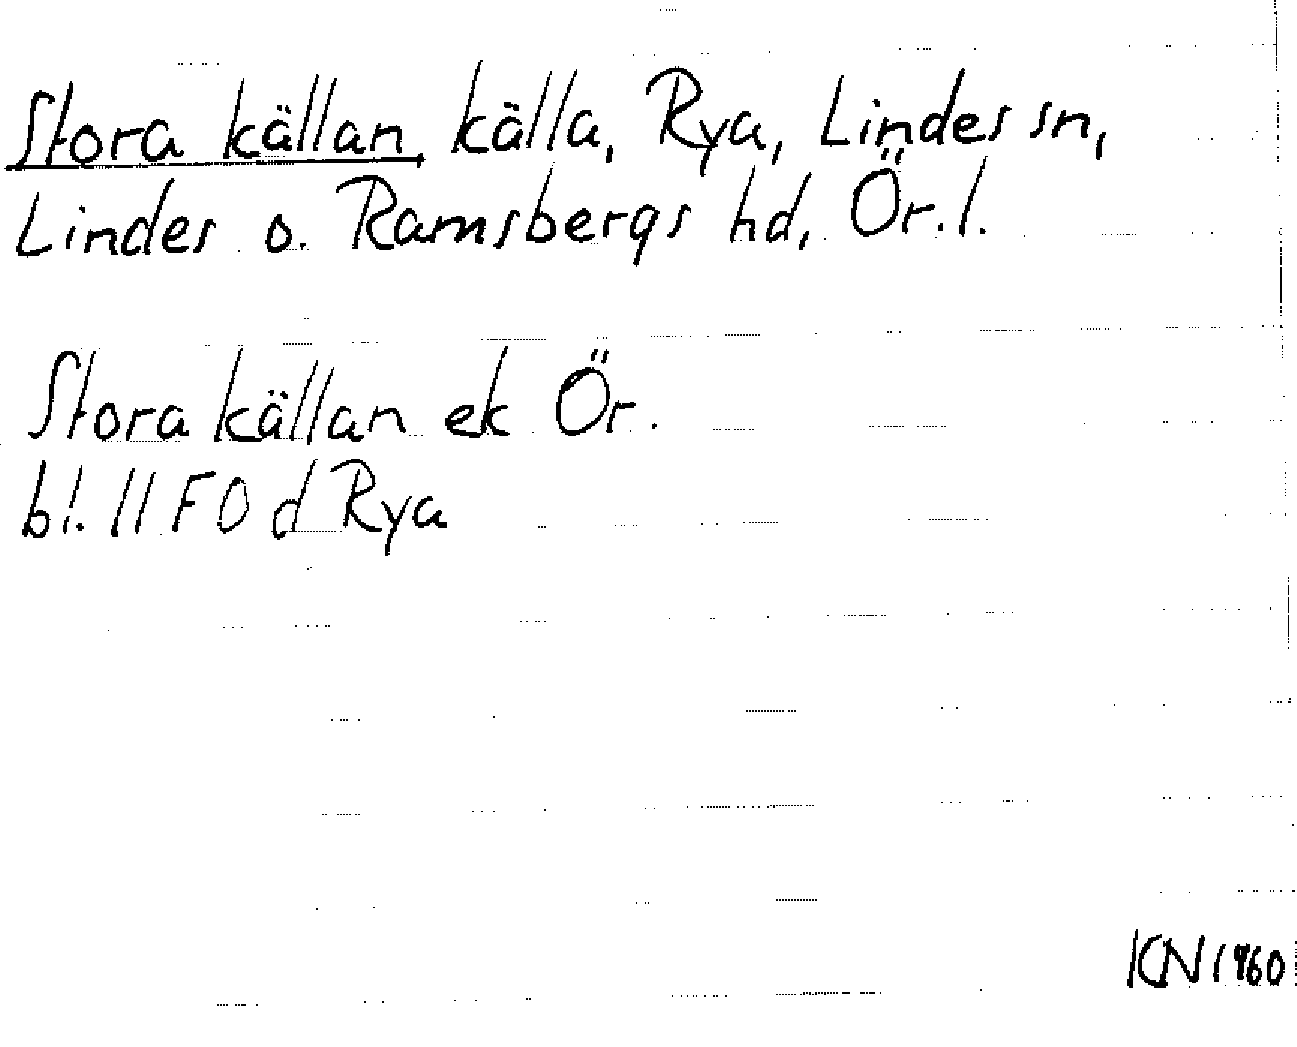 Stora källan, källa, Rya, Lindes sn,
Lindes o. Ramsbergs hd, Ör. l.
Stora källan ek Ör.
bl. 11 F 0 d Rya
KN 1960